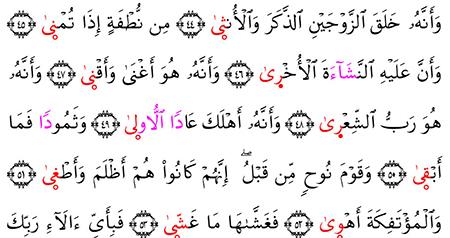 وَأَنَّهُۥ خَلَقَ ٱلزَّوْجَيْنِ ٱلذَّكَرَ وَٱلْأُنثىٰ ٤٤ مِن نُّطْفَةٍ إِذَا تُمْنىٰ ٤٥
وَأَنَّ عَلَيْهِ ٱلنَّشَآءَةَ ٱلْأُخْرىٰ ٤٦ وَأَنَّهُۥ هُوَ أَغْنَىٰ وَأَقْنىٰ ٤٧ وَأَنَّهُۥ
هُوَ رَبُّ ٱلشِّعْرىٰ ٤٨ وَأَنَّهُۥ أَهْلَكَ عَادًا ٱلُّاولىٰ ٤٩ وَثَمُودًا فَمَا
أَبْقىٰ ٥٠ وَقَوْمَ نُوحٍ مِّن قَبْلُ ۖ إِنَّهُمْ كَانُوا۟ هُمْ أَظْلَمَ وَأَطْغىٰ ٥١
وَٱلْمُؤْتَفِكَةَ أَهْوىٰ ٥٢ فَغَشَّىٰهَا مَا غَشّىٰ ٥٣ فَبِأَىِّ ءَالَآءِ رَبِّكَ